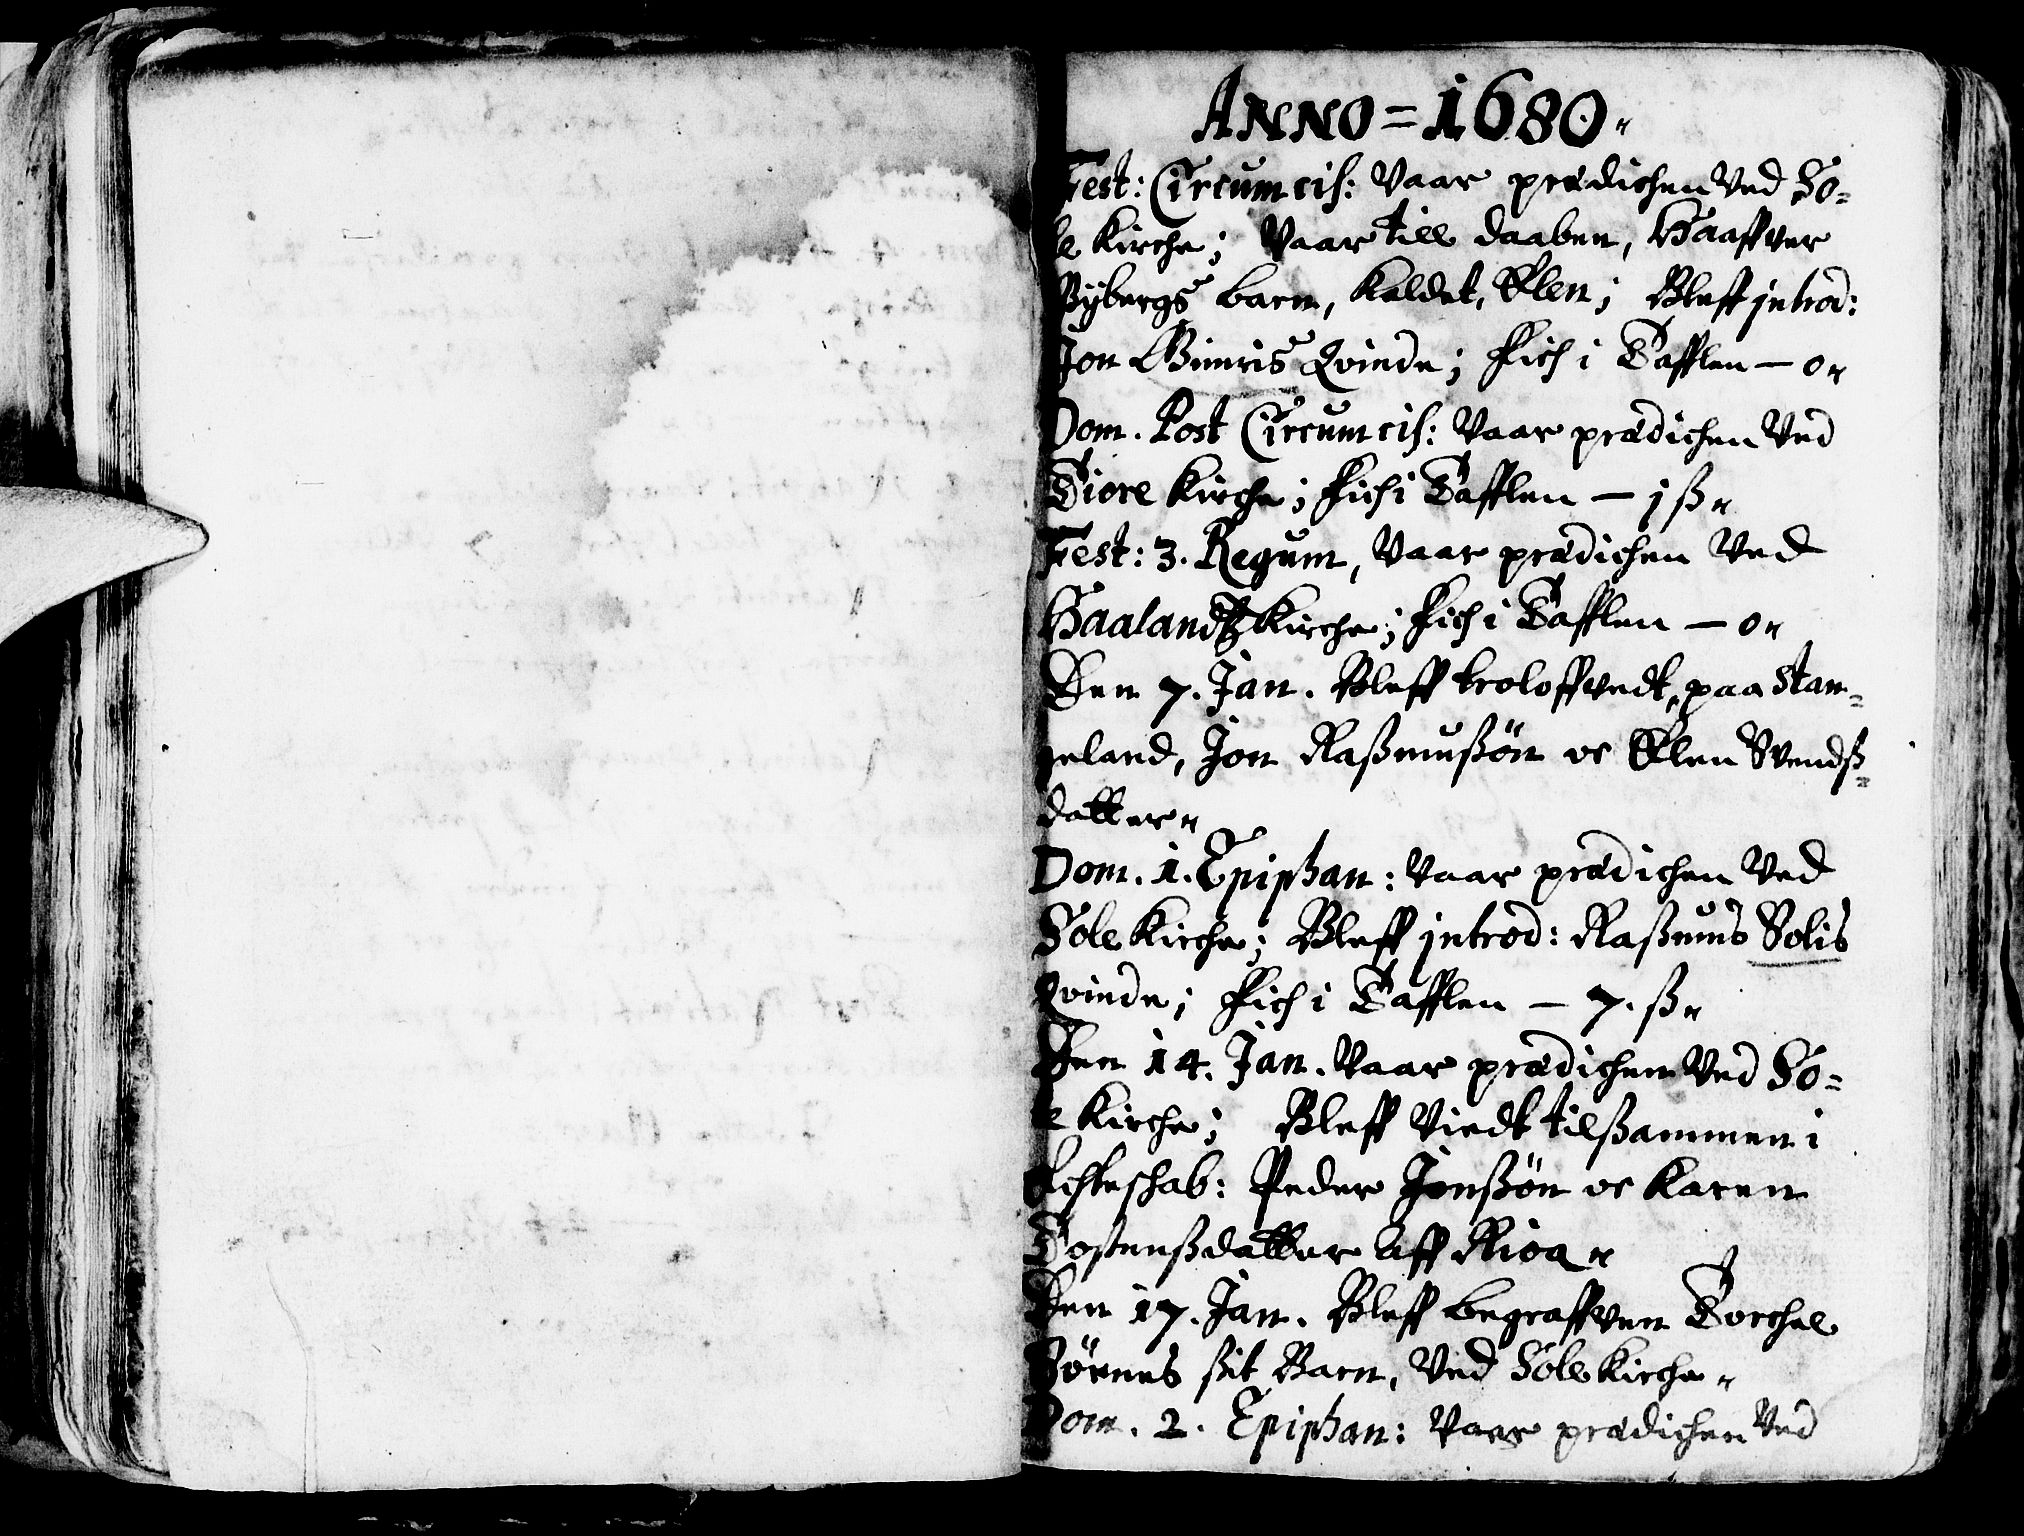 ANNO = 1680 "
Fest: Circumcis: Vaar prædichen Ved So-
le Kirche; Vaar till daaben, Haaffver
Bybergs barn, Kaldet, Elen; Bleff introd:
Jon Gimris Qvinde; Fich i Tafflen — 0 "
Dom. Post Circumcis: Vaar prædichen Ved
Tiore Kirche; Fich i Tafflen — j ß "
Fest: 3. Regum, Vaar prædichen Ved
Haalandtz Kirche; Fich i Tafflen — 0 "
Den 7. Jan. Bleff troloffvedt, paa Stan-
geland, Jon Raßmußön oc Elen Svendß-
datter "
Dom. 1. Epiphan: Vaar prædichen Ved
Sole Kirche; Bleff introd: Raßmus Solis
Qvinde; Fich i Tafflen — 7. ß "
Den 14. Jan. Vaar prædichen Ved So-
le Kirche; Bleff Viedt tilßammen i
Echteschab: Peder Jonßön oc Karen
Tostenßdatter aff Risa "
Den 17. Jan. Bleff begraffven Torchel
Sörnes ßit Barn, Ved Sole Kirche "
Dom. 2. Epiphan: Vaar prædichen Ved